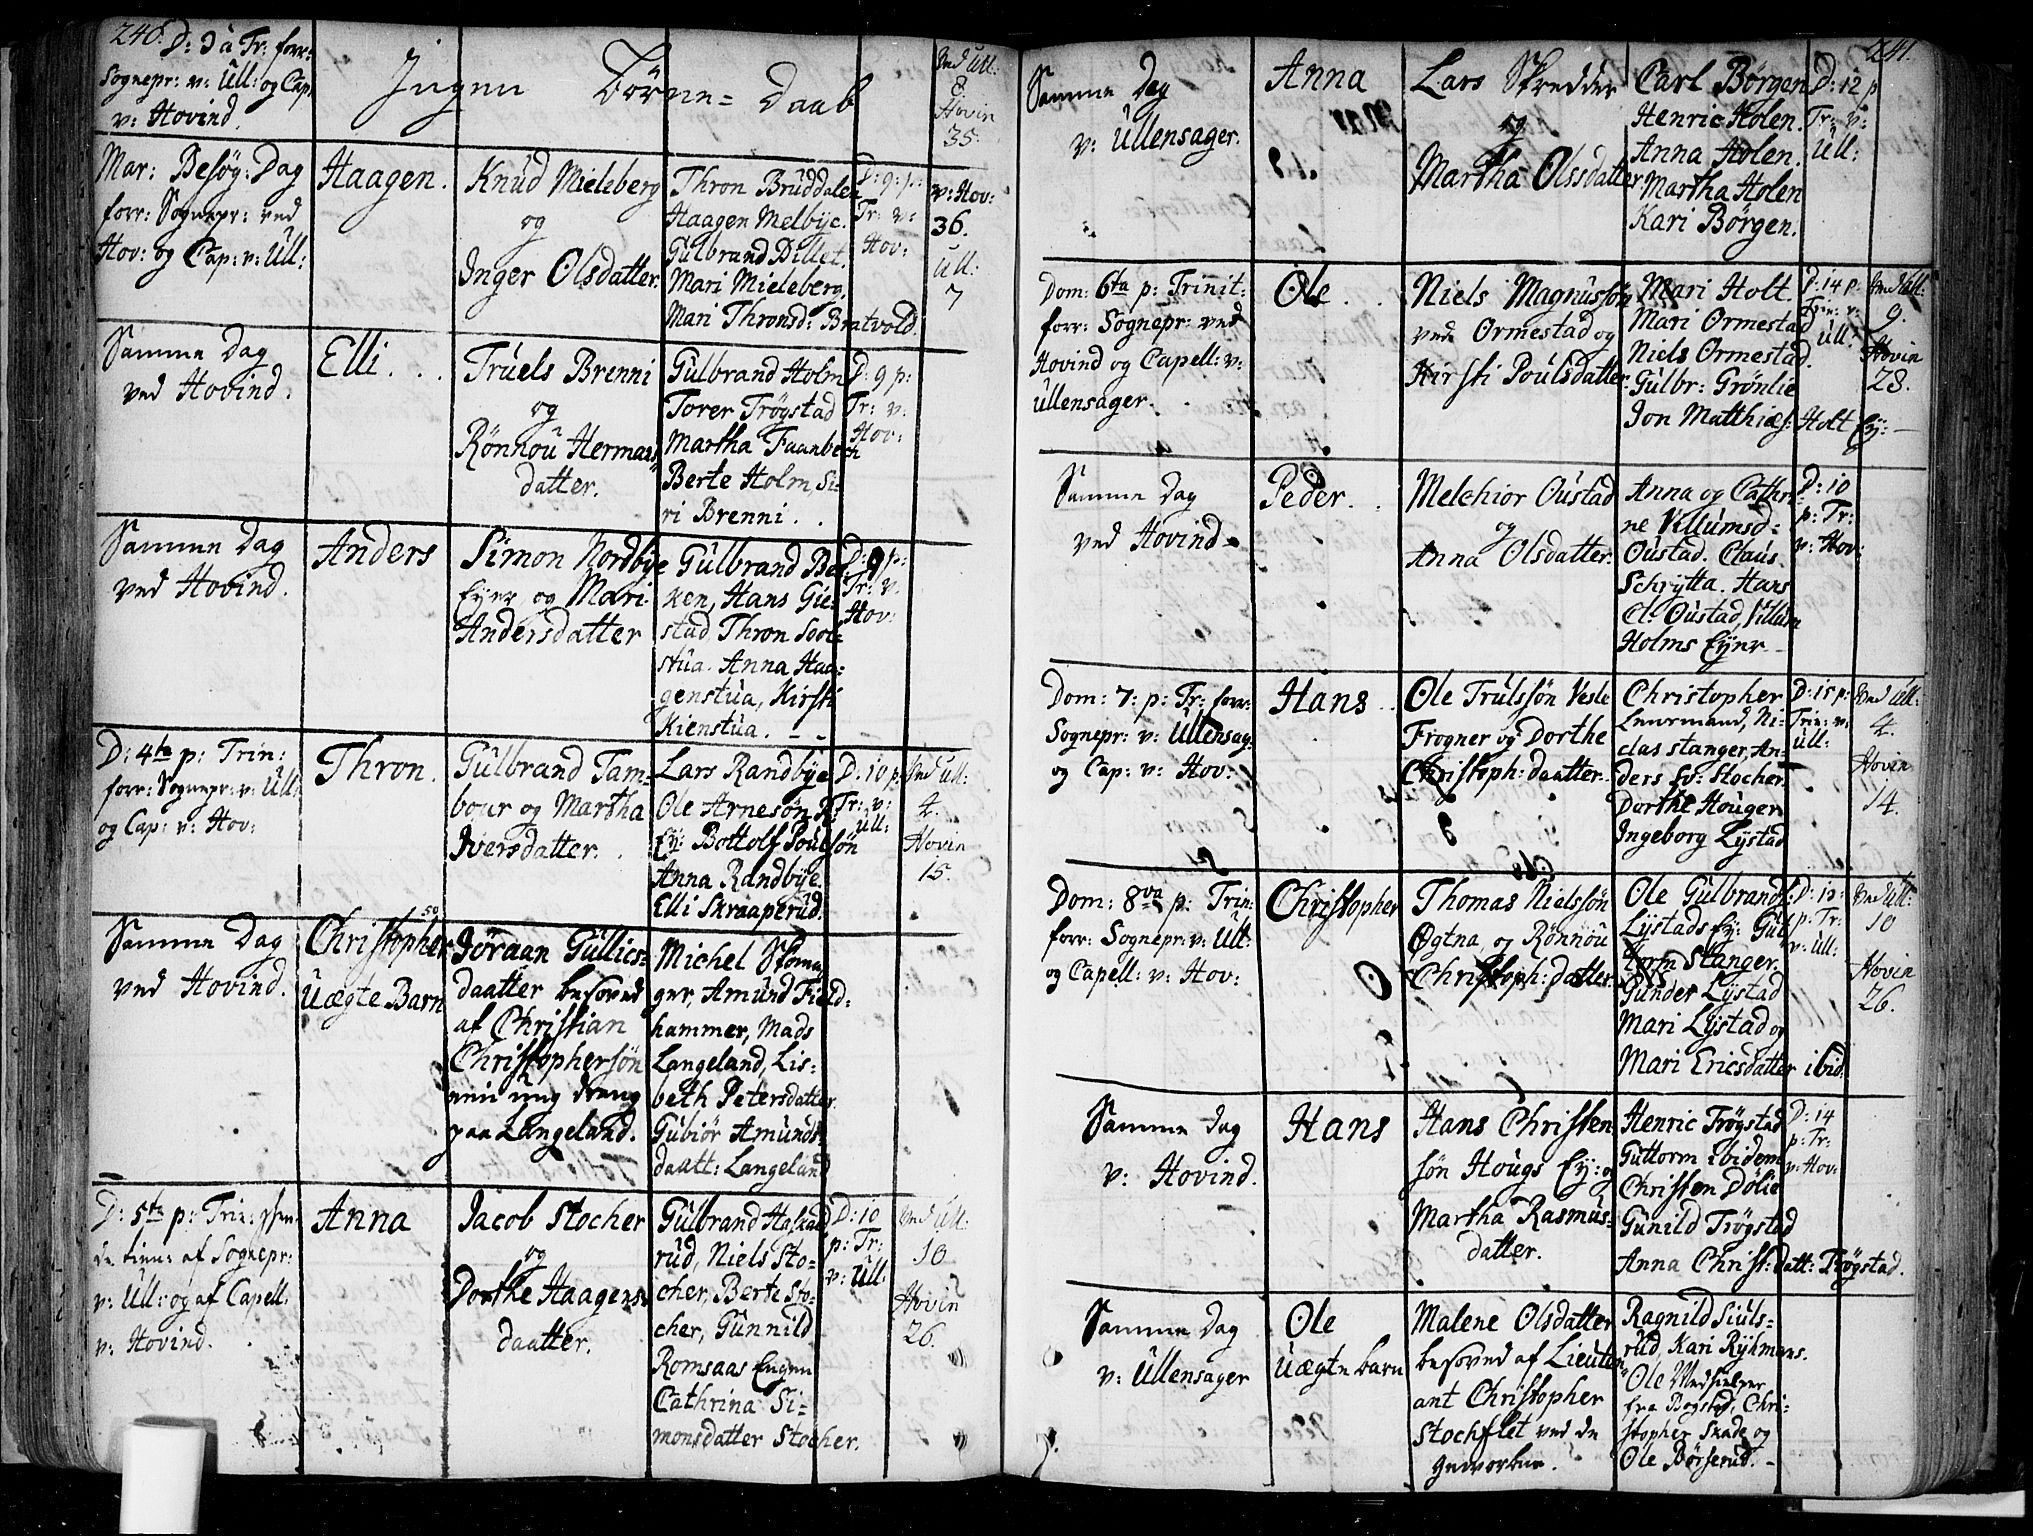 240.
D: 3 a Tr: forr:
Sognepr: v: Ull: og Cap:
v: Hovind.
Ingen Börne= Daab
Ved Ull:
8.
Hovin
35.
Mar: Besög: Dag
forr: Sognepr: ved
Hov: og Cap: v: Ull:
Haagen.
Knud Mieleberg
og
Inger Olsdatter.
Thron Bruddalen
Haagen Melbÿe.
Gulbrand Dillet.
Mari Mieleberg.
Mari Thronsd: Bratvold.
D: 9: p:
Tr: v:
Hov:
v: Hov:
36.
Ull:
7
Samme Dag
ved Hovind.
Elli . .
Truels Brenni
og
Rönnou Hermans
datter.
Gulbrand Holm
Torer Trögstad
Martha Faanbech
Berte Holm, Si=
ri Brenni . .
D: 9 p:
Tr: v:
Hov:
Samme Dag
ved Hovind.
Anders
Simon Nordbÿe
Eÿer, og Mari
Andersdatter
Gulbrand Bec
ken, Hans Gie=
stad Thron
stua. Anna Haa=
genstua, Kirsti
Kienstua. _ _
D: 9 p:
Tr: v:
Hov:
D: 4ta p: Trin:
forr: Sognepr: v: Ull:
og Cap: v: Hov:
Thron.
Gulbrand Tam=
bour og Martha
Iversdatter. .
Lars Randbÿe
Ole Arnesön R:
Eÿ: Bottolf Poulsön
Anna Randbÿe.
Elli Skraaperud.
D: 10 p:
Tr: v:
Ull:
Ved Ull:
4.
Hovin
15.
Samme Dag
ved Hovind.
Christopher
Uægte Barn
Jöraan Gullics=
daatter besoved
af Christian
Christophersön
en ung dreng
paa Langeland.
Michel
ger, Amund Field=
hammer, Mads
Langeland, Lis=
beth Petersdatter
Gubiör Amunds
daatt: Langeland
D: 5ta p: Trin:
tien: af Sognepr:
v: Ull: og af Capell:
v: Hovind.
Anna
Jacob Stocher
og
Dorthe Haagens
daatter.
Gulbrand
rud, Niels Sto=
cher, Berte Sto=
cher, Gunnild
Romsaas Engen
Cathrina Si=
monsdatter Stocher.
D: 10
p: Tr:
v: Ull:
Ved Ull:
10
Hovin
26.
241.
Samme Dag
v: Ullensager.
Anna
Lars Spredder
og
Martha Olssdatter
Carl Börgen
Henric Holen.
Anna Holen.
Martha Holen
Kari Börgen.
D: 12 p
Tr: v:
Ull:
Dom: 6ta p: Trinit:
forr: Sognepr: ved
Hovind og Capell: v:
Ullensager.
Ole . .
Niels Magnussön
ved Ormestad og
Kirsti Poulsdatter.
Mari Holt.
Mari Ormestad
Niels Ormestad.
Gulbr: Grönlie
Jon Matthies: Holt Eÿ:
D: 14 p:
Trin: v:
Ull:
Ved Ull:
9.
Hovin
28.
Samme Dag
ved Hovind
Peder. .
Melchior Oustad
og
Anna Olsdatter.
Anna og Cathri
ne Villumsd:
Oustad. Claus
Schrÿtta. Hans
Cl: Oustad, Villum
Holms Eÿer
D: 10
p: Tr:
v: Hov:
Dom: 7: p: Tr: forr:
Sognepr: v: Ullensag:
og Cap: v: Hov:
Hans .
Ole Trulssön Vesle
Frogner og Dorthe
Christoph: daatter.
Christopher
Leermand, Ni=
clas stanger, An=
ders Sv: Stocher
Dorthe Houger
Ingeborg Lÿstad
D: 15 p:
Trin: v:
Ull:
Ved Ull:
4.
Hovin
14.
Dom: 8va p: Trin:
forr: Sognepr: v: Ull:
og Capell: v: Hov:
Christopher
Thomas Nielssön
Ögtna, og Rönnou
Christoph: datter.
Ole Gulbrands:
Lÿstads Eÿ: Gut
torm Stanger.
Gunder Lÿstad
Mari Lÿstad og
Mari Ericsdatter ibid:
D: 13:
p: Tr:
v: Ull:
Ved Ull:
10
Hovin
26.
Samme Dag
v: Hovind.
Hans
Hans Christen
sön Hougs Eÿ: og
Martha Rasmus=
datter.
Henric Trögstad
Guttorm ibidem
Christen Dölie
Gunild Trögstad
Anna Christ: datt: Trögstad.
D: 14
p: Tr:
v: Hov:
Samme Dag
v: Ullensager
Ole
Uægte barn
Malene Olsdatter
besoved af Lieuten
ant Christopher
Stochflet ved de
geworbne.
Ragnild Siuls=
rud, Kari Rÿkmans.
Ole Medhielper
fra Bogstad, Chri=
stopher Skade og
Ole Börserud.